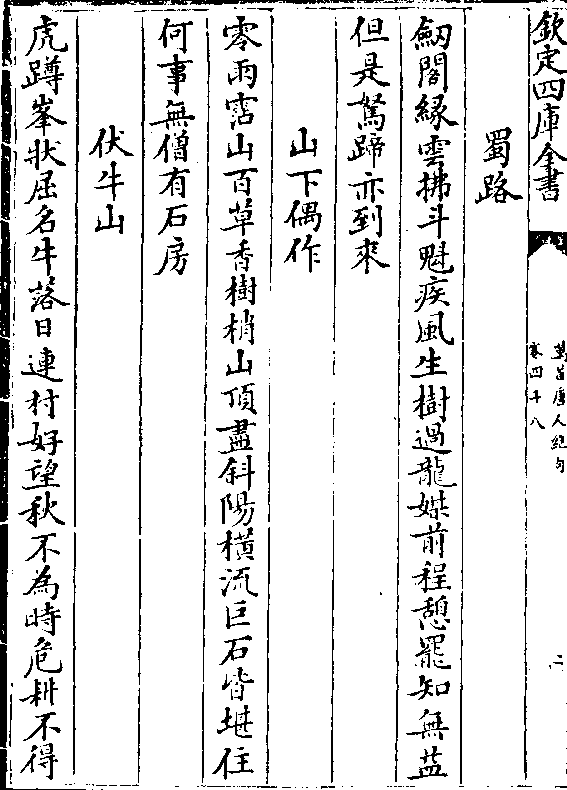 欽定四庫全書
萬首唐人絶句
卷四十八
二
蜀路
劒閣緣雲拂斗魁疾風生樹過龍媒前程憩罷知無益
但是駑蹄亦到來
山下偶作
零雨霑山百草香樹梢山頂盡斜陽橫流巨石皆堪住
何事無僧有石房
伏牛山
虎蹲峯狀屈名牛落日連村好望秋不為時危耕不得